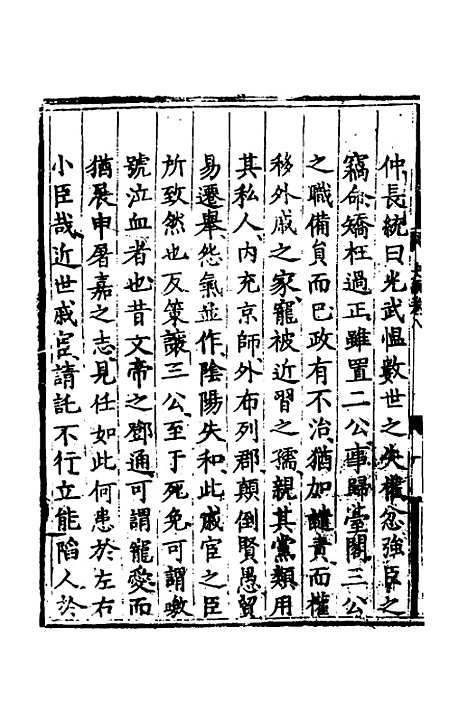 仲長統曰光武愠數世之失權忿強臣之
竊命矯枉過正雖置二公事歸臺閣三公
之職備員而已政有不治猶加譴責而權
移外戚之家寵被近習之孺親其黨類用
其私人内充京師外布列郡顛倒賢愚貿
易選舉怨氣並作陰陽失和此戚宦之臣
所致然也反策讓三公至于死免可謂噭
號泣血者也昔文帝之鄧通可謂寵愛而
猶展申屠嘉之志見任如此何患於左右
小臣哉近世戚宦請託不行立能陷人於